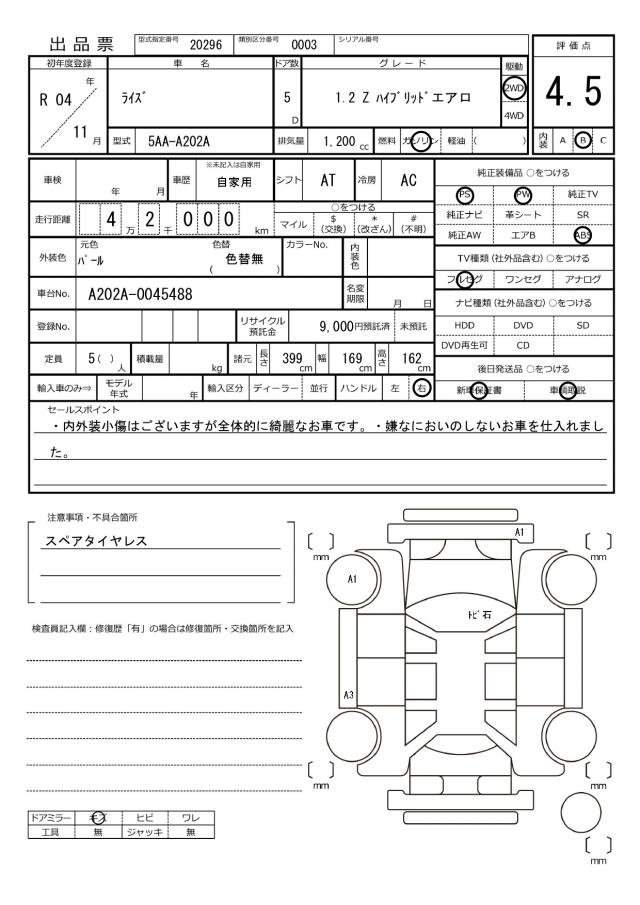 出品票 型式指定番号 20296 類別区分番号 0003 シリアル番号
評価点
4.5
内装 A B C
初年度登録 車名 ドア数 グレード 駆動
R 04 年 11 月
ﾗｲｽﾞ
5 D
1.2 Z ﾊｲﾌﾞﾘｯﾄﾞエアロ
2WD
4WD
型式 5AA-A202A 排気量 1.200 cc 燃料 ガソリン 軽油 ( )
車検 年 月 車歴 ※未記入は自家用 自家用 シフト AT 冷房 AC
走行距離 4 万 2 千 0 0 0 km
○をつける
マイル $(交換) *(改ざん) #(不明)
外装色 元色 ﾊﾟｰﾙ 色替 ( 色替無 ) カラーNo. 内装色
車台No. A202A-0045488 名変期限 月 日
登録No. リサイクル預託金 9,000円預託済 未預託
定員 5( )人 積載量 kg 諸元 長さ 399 cm 幅 169 cm 高さ 162 cm
輸入車のみ⇒ モデル年式 年 輸入区分 ディーラー 並行 ハンドル 左 右
純正装備品 ○をつける
PS PW 純正TV
純正ナビ 革シート SR
純正AW エアB ABS
TV種類(社外品含む)○をつける
フルセグ ワンセグ アナログ
ナビ種類(社外品含む)○をつける
HDD DVD SD
DVD再生可 CD
後日発送品 ○をつける
新車保証書 車輌取説
セールスポイント
・内外装小傷はございますが全体的に綺麗なお車です。・嫌なにおいのしないお車を仕入れまし
た。
注意事項・不具合箇所
スペアタイヤレス
検査員記入欄：修復歴「有」の場合は修復箇所・交換箇所を記入
A1
mm mm
A1
ﾄﾋﾞ石
A3
mm mm
mm
ドアミラー キズ ヒビ ワレ
工具 無 ジャッキ 無